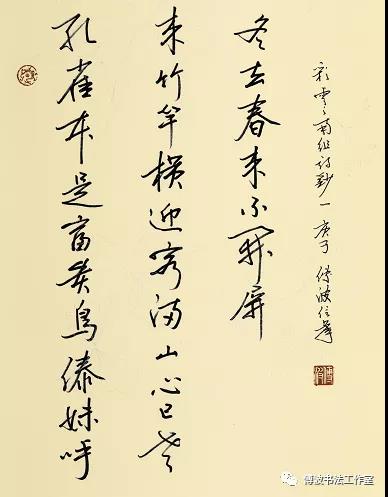 孔雀本是富貴鳥傣妹呼
来竹竿横迎客満山心已老
冬去春来不開屏
彩雲之南组诗钞一 庚子 傅波信筆
傅波书法工作室